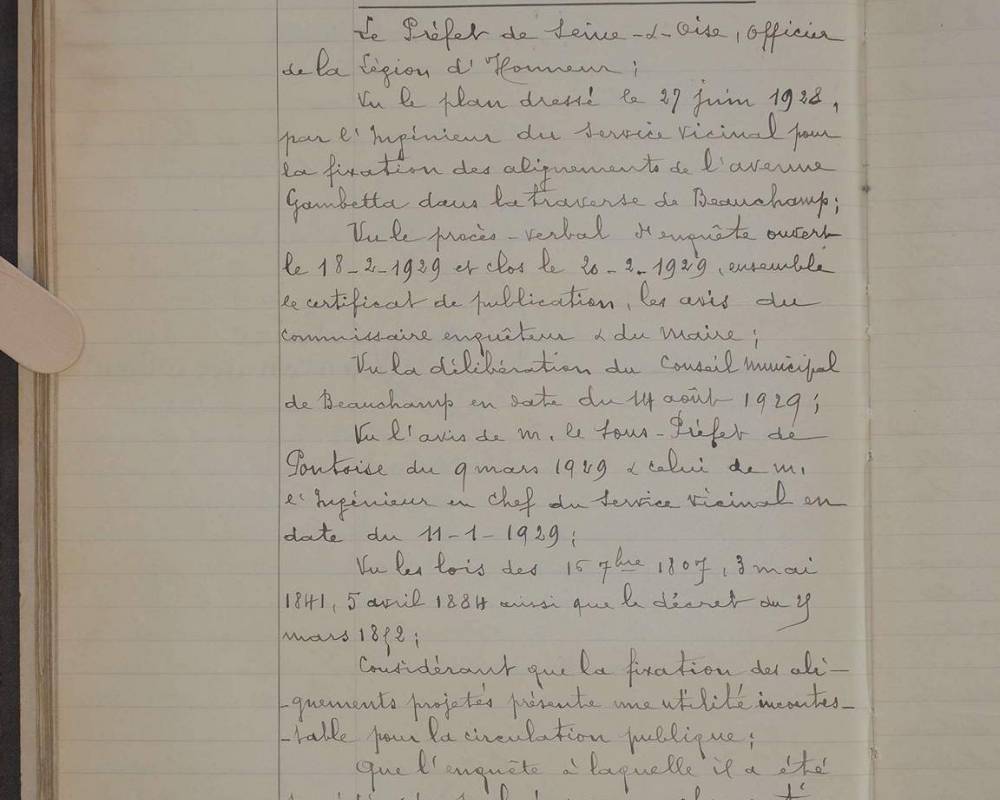 Le Préfet de Seine-&-Oise, officier
de la Légion d'Honneur;
Vu le plan dressé le 27 juin 1928,
par l'Ingénieur du Service vicinal pour
la fixation des alignements de l'avenue
Gambetta dans la traverse de Beauchamp;
Vu le procès-verbal d'enquête ouvert
le 18-2-1929 et clos le 20-2-1929, ensemble
le certificat de publication, les avis du
commissaire enquêteur & du Maire;
Vu la délibération du Conseil Municipal
de Beauchamp en date du 14 août 1929;
Vu l'avis de M. le Sous-Préfet de
Pontoise du 9 mars 1929 & celui de M.
l'Ingénieur en Chef du Service vicinal en
date du 11-1-1929;
Vu les lois des 16 7bre 1807, 3 mai
1841, 5 avril 1884 ainsi que le décret du 25
mars 1852;
Considérant que la fixation des ali-
-gnements projetés présente une utilité incontes-
-table pour la circulation publique;
Que l'enquête à laquelle il a été